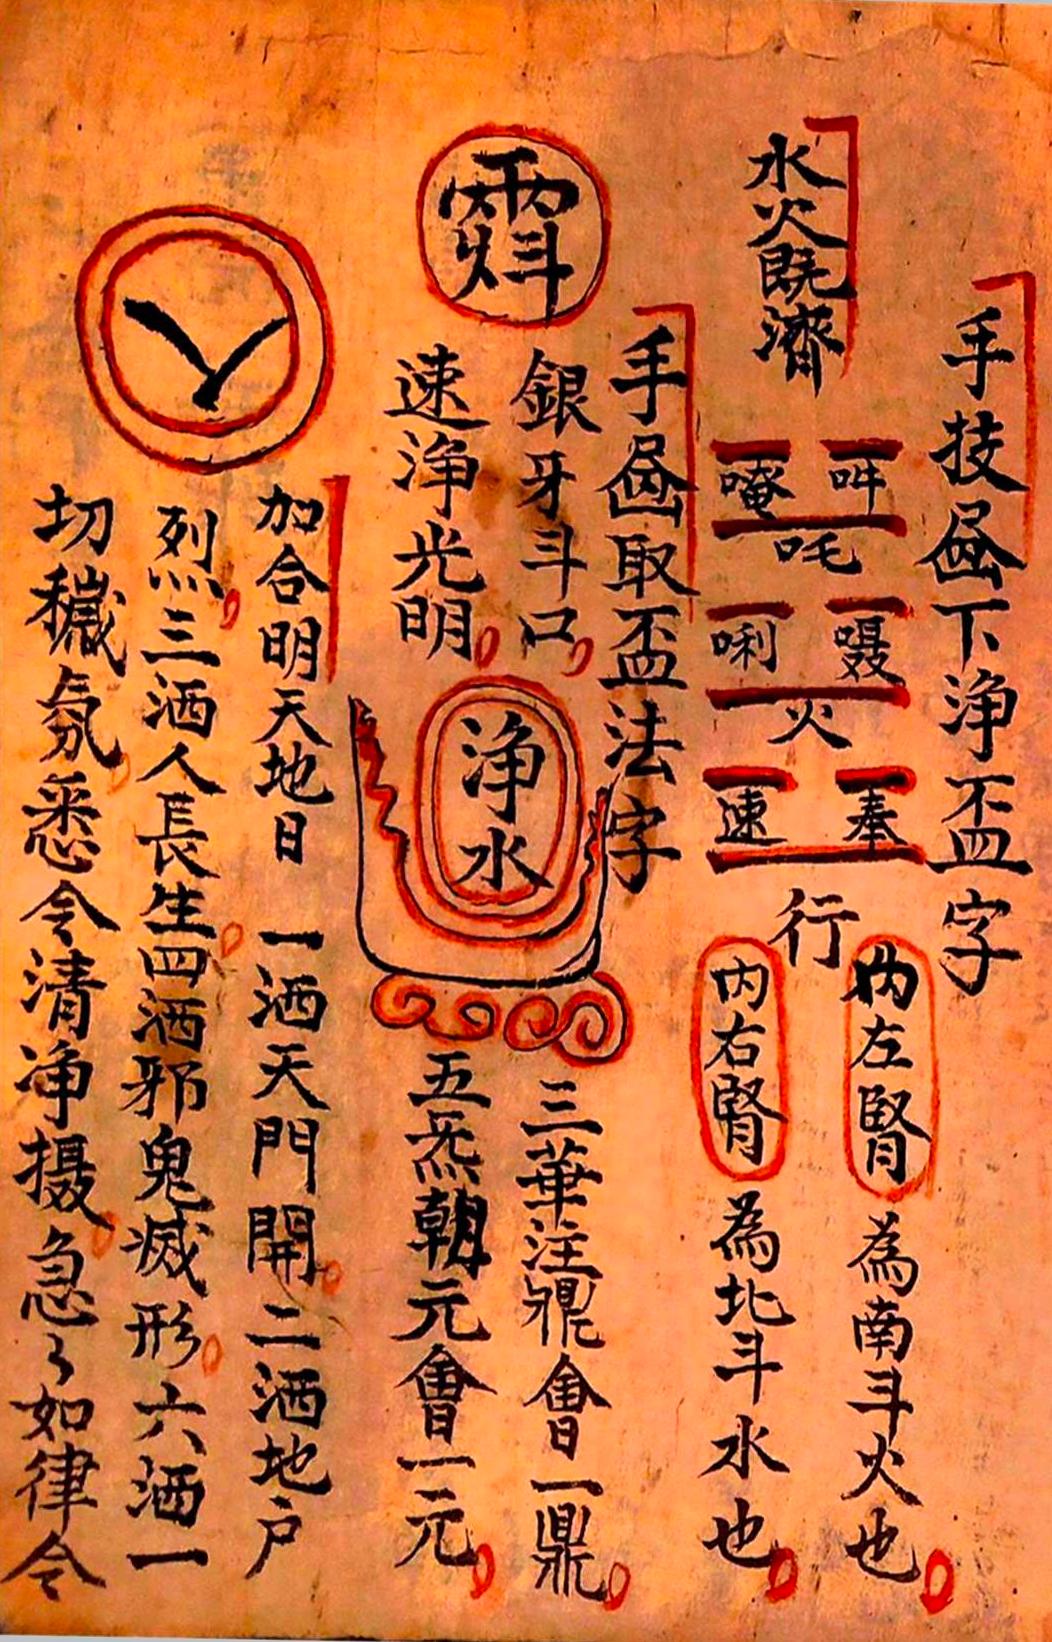 手技下浄盃字
水火既濟
吽
唵
吒
囁
唎
火
奉
速
行
内左腎
為南斗火也
内右腎
為北斗水也
手取盃法字
銀牙斗口
速浄光明
浄水
三華注鼎會一鼎
五炁朝元會一元
加合明天地日 一洒天門開二洒地户
烈三洒人長生四洒邪鬼滅形六洒一
切穢氛悉令清浄摄急々如律令